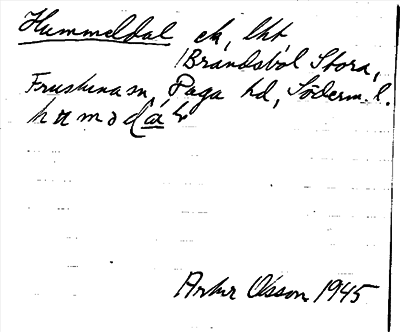 Hummeldal ek, lht,
/Brandsbol Stora,
Frustuna sn, Daga hd, Söderm. l.
Artur Olsson 1945